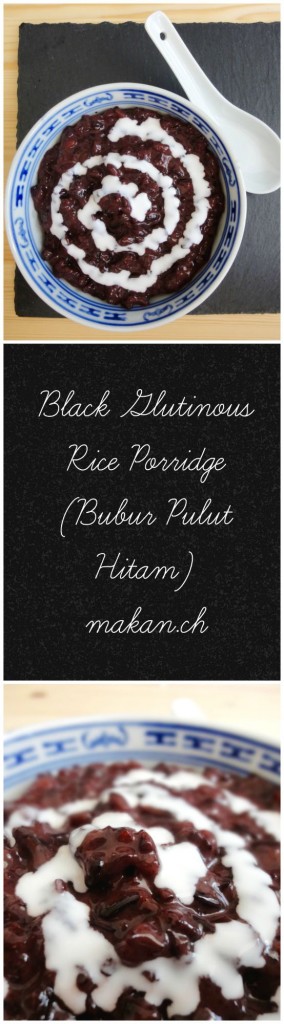 Black Glutinous
Rice Porridge
(Bubur Pulut
Hitam)
makan.ch